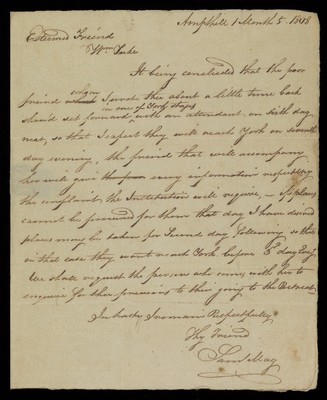 Ampthill 1 Month 5. 1818
Esteemed Friend
Wm Tuke
It being concluded that the poor
whom
friend I wrote thee about a little time back
in one of York stages
should set forward with an attendant, on sixth day
next, so that I expect they will reach York on seventh
day evening, the friend that will accompany
her will give every information respecting
the complaint, the Institution will require, – If places
cannot be procured for them that day I have desired
places may be taken for Second day following so that
in that case they wont reach York before 3d day Eveng
We shall request the person who comes with her to
enquire for thee previous to their going to the Retreat –
I remain Respectfully
Thy Friend
Saml May